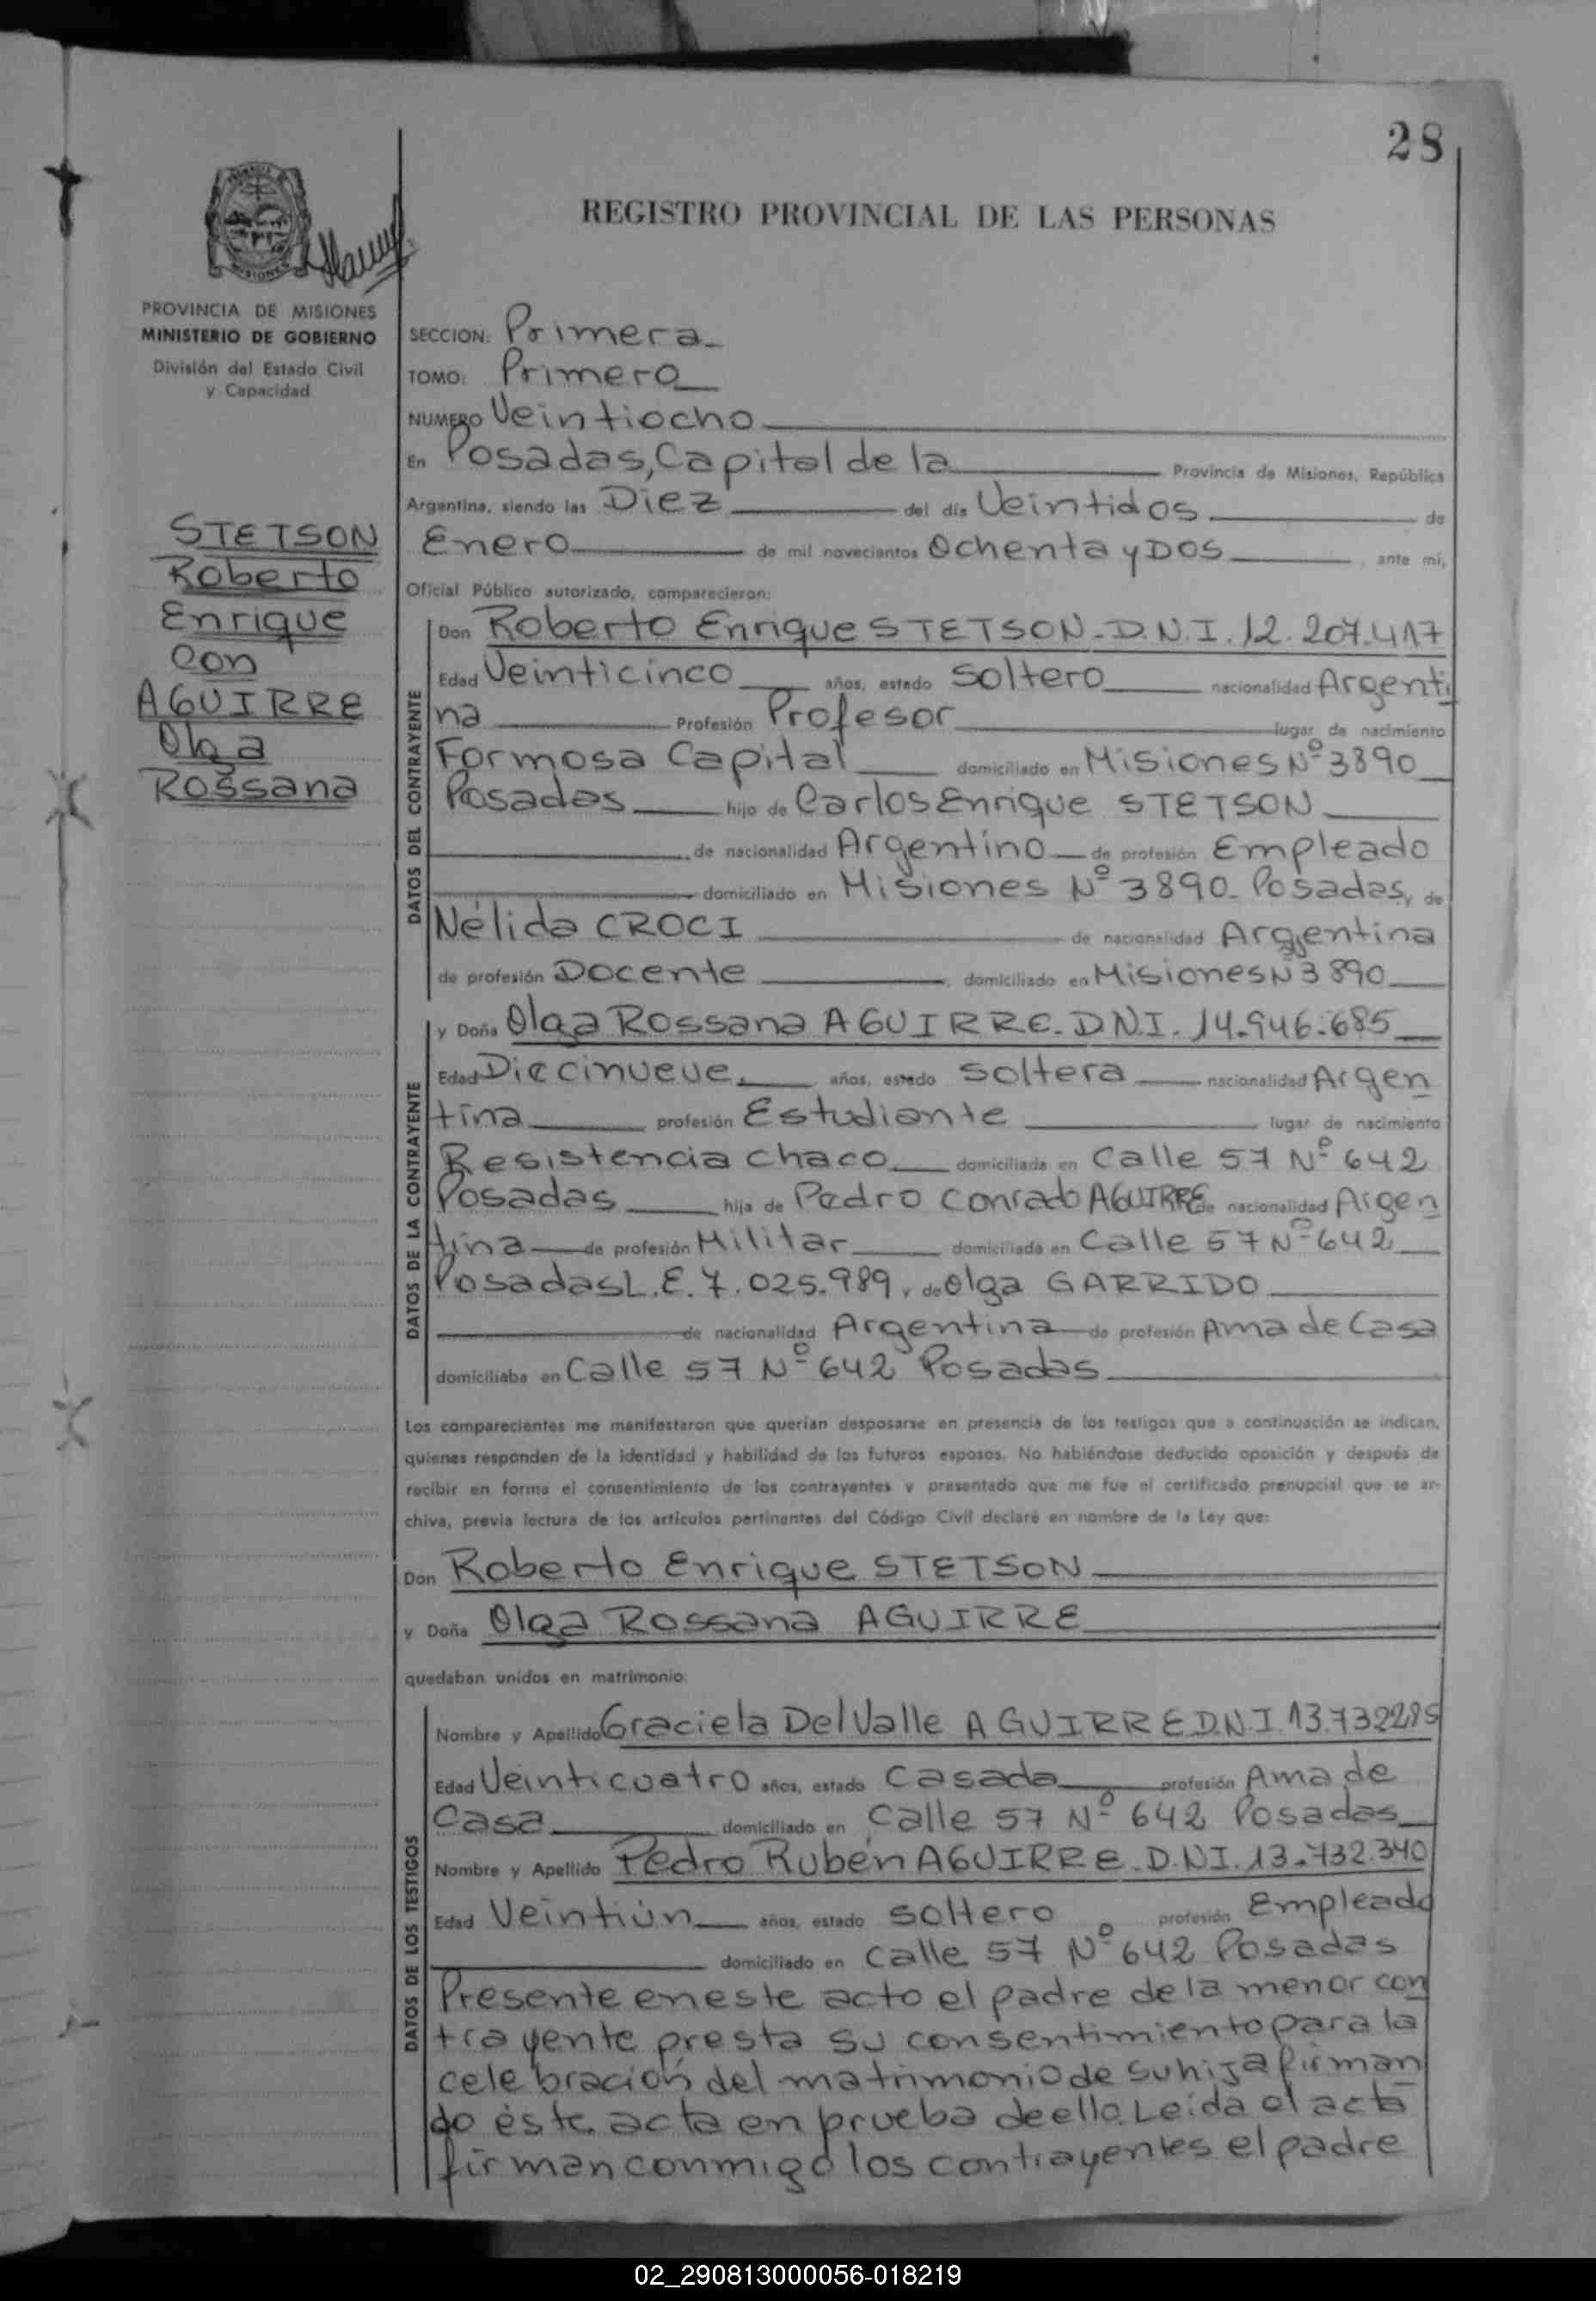 28
REGISTRO PROVINCIAL DE LAS PERSONAS
MISIONES
PROVINCIA DE MISIONES
MINISTERIO DE GOBIERNO
División del Estado Civil
y Capacidad
STETSON
Roberto
Enrique
con
AGUIRRE
Olga
Rossana
SECCION: Primera
TOMO: Primero
NUMERO Veintiocho
En Posadas, Capital de la Provincia de Misiones, República
Argentina, siendo las Diez del día Veintidos de
Enero de mil novecientos Ochenta y Dos, ante mí,
Oficial Público autorizado, comparecieron:
DATOS DEL CONTRAYENTE
Don Roberto Enrique STETSON-D.N.I. 12.207.417
Edad Veinticinco años, estado Soltero nacionalidad Argenti
na Profesión Profesor lugar de nacimiento
Formosa Capital domiciliado en Misiones Nº 3890
Posadas hijo de Carlos Enrique STETSON
de nacionalidad Argentino de profesión Empleado
domiciliado en Misiones Nº 3890-Posadas, de
Nélida CROCI de nacionalidad Argentina
de profesión Docente, domiciliado en Misiones N 3890
DATOS DE LA CONTRAYENTE
y Doña Olga Rossana AGUIRRE-D.N.I. 14.946.685
Edad Diecinueve años, estado Soltera nacionalidad Argen
tina profesión Estudiante lugar de nacimiento
Resistencia Chaco domiciliada en Calle 57 Nº 642
Posadas hija de Pedro Conrado AGUIRRE de nacionalidad Argen
tina de profesión Militar domiciliada en Calle 57 Nº 642
Posadas L.E. 7.025.989, de Olga GARRIDO
de nacionalidad Argentina de profesión Ama de Casa
domiciliaba en Calle 57 Nº 642 Posadas
Los comparecientes me manifestaron que querían desposarse en presencia de los testigos que a continuación se indican,
quienes responden de la identidad y habilidad de los futuros esposos. No habiéndose deducido oposición y después de
recibir en forma el consentimiento de los contrayentes y presentado que me fue el certificado prenupcial que se ar-
chiva, previa lectura de los artículos pertinentes del Código Civil declaré en nombre de la Ley que:
Don Roberto Enrique STETSON
y Doña Olga Rossana AGUIRRE
quedaban unidos en matrimonio.
DATOS DE LOS TESTIGOS
Nombre y Apellido Graciela Del Valle AGUIRRE D.N.I. 13.732285
Edad Veinticuatro años, estado Casada profesión Ama de
Casa domiciliado en Calle 57 Nº 642 Posadas
Nombre y Apellido Pedro Rubén AGUIRRE-D.N.I. 13.732.340
Edad Veintiún años, estado Soltero profesión Empleado
domiciliado en Calle 57 Nº 642 Posadas
Presente en este acto el padre de la menor con
trayente presta su consentimiento para la
celebración del matrimonio de su hija firman
do éste acta en prueba de ello. Leida el acta
firman conmigo los contrayentes el padre
02_290813000056-018219